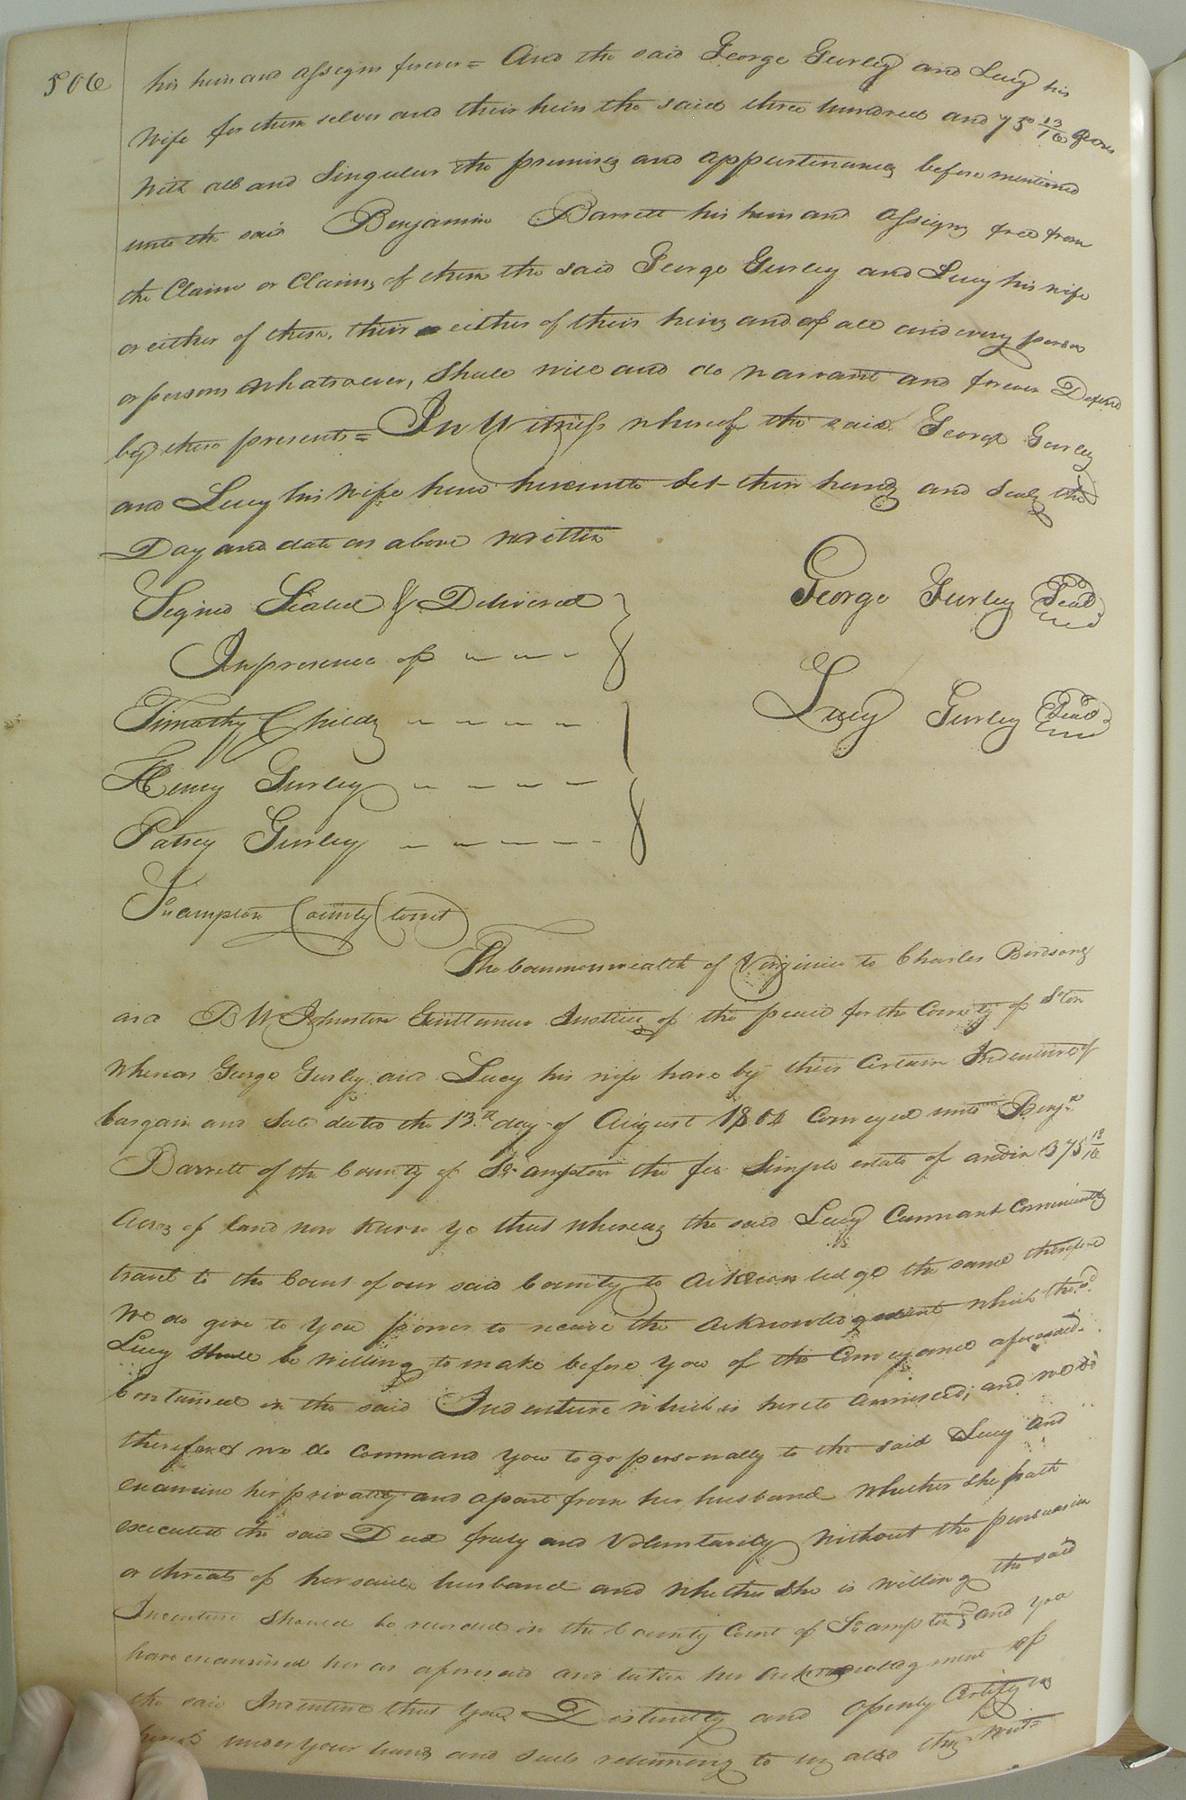 506
his heirs and assigns forever = And the said George Gurley and Lucy his
Wife for them selves and their heirs the said three hundred and 75 13/16 acres
With all and Singular the premises and appurtenances before mentioned
unto the said Benjamin Barrett his heirs and assigns free from
the Claim or Claims of them the said George Gurley and Lucy his wife
or either of them, their or either of their heirs and of all and every person
or persons Whatsoever, Shall will and do warrant and forever Defend
by these presents = In Witness whereof the said George Gurley
and Lucy his Wife have hereunto Set their hands and seals the
Day and date as above written
Signed Sealed & Delivered
In presence of
George Gurley Seal
Timothy Childs
Lucy Gurley Seal
Henry Gurley
Patsey Gurley
So'ampton County Court
The Commonwealth of Virginia to Charles Birdsong
and B W Johnston Gentlemen Justices of the peace for the County of S'ton
Whereas George Gurley and Lucy his wife have by their Certain Indenture of
bargain and Sale dated the 13th day of August 1804 Conveyed unto Benjn
Barrett of the County of So'ampton the fee Simple estate of and in 375 13/16
Acres of land now Know ye that whereas the said Lucy Cannant Conveniently
travel to the Court of our said County to acknowledge the same therefore
We do give to you power to receive the Acknowledgement which the sd
Lucy shall be Willing to make before you of the Conveyance aforesaid
Contained in the said Indenture which is hereto annexed; and we do
therefore we do command you to go personally to the said Lucy and
examine her privately and apart from her husband Whether she hath
executed the said Deed freely and Voluntarily Without the persuasion
or threats of her said husband and whether She is willing the said
Indenture Should be recorded in the County Court of So'ampton; and you
have examined her as aforesaid and taken her acknowledgment of
the said Indenture that you Distinctly and openly Certify us
thereof under your hands and seals returning to us also this writ